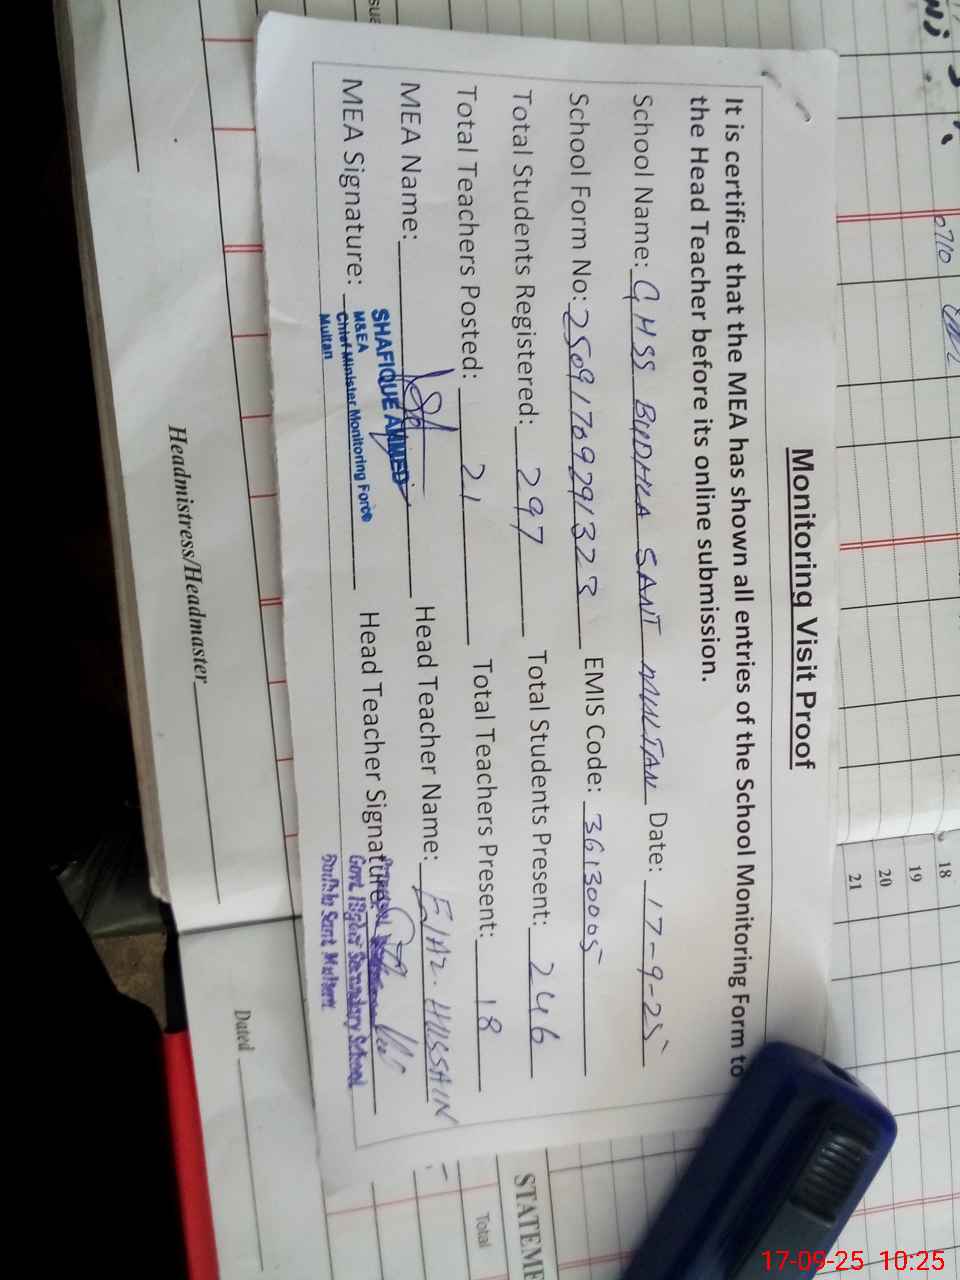 Monitoring Visit Proof
It is certified that the MEA has shown all entries of the School Monitoring Form to
the Head Teacher before its online submission.
School Name: GHSS BUDHLA SANT MULTAN Date: 17-9-25
School Form No: 25091709291323 EMIS Code: 36130005
Total Students Registered: 297 Total Students Present: 246
Total Teachers Posted: 21 Total Teachers Present: 18
MEA Name: Head Teacher Name: EJAZ. HUSSAIN
SHAFIQUE AHMED
M&EA
Chief Minister Monitoring Force
Multan
MEA Signature: Head Teacher Signature:
Govt. Higher Secondary School
Budhla Sant Multan
Headmistress/Headmaster
Dated
STATEME
Total
18
19
20
21
17-09-25 10:25